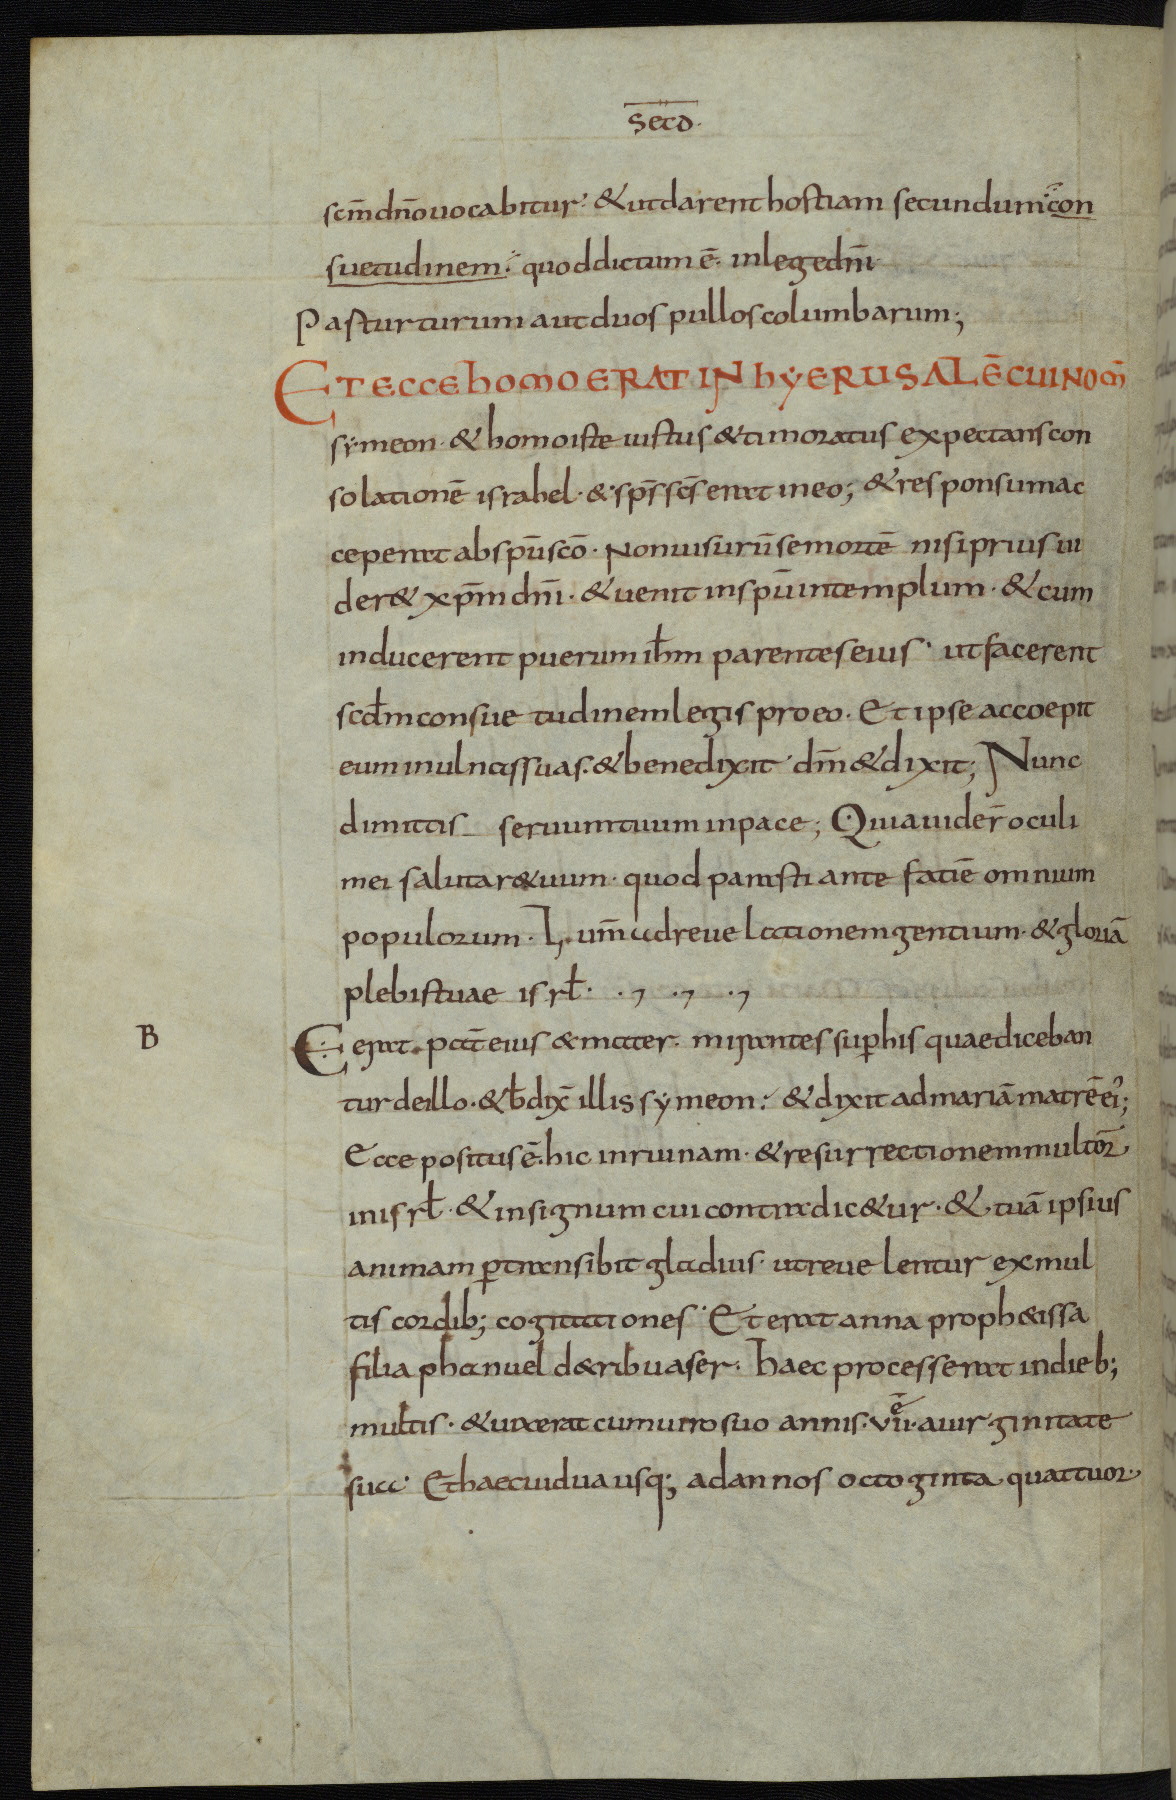 Secd
scm̄ dn̄o uocabitur. & ut darent hostiam secundum con
suetudinem. quod dictum ē. in lege dn̄i
Par turturum aut duos pullos columbarum;
ET ECCE HOMO ERAT IN HYERUSALĒ CUI NOM̄
symeon. & homo iste iustus & timoratus expectans con
solationē israhel. & sp̄s sc̄s erat in eo; & responsum ac
ceperat ab sp̄u sc̄o. Non uisurū se mortē nisi prius ui
der& xp̄m dn̄i. & uenit in sp̄u in templum. & cum
inducerent puerum ih̄m parentes eius. ut facerent
scd̄m consuetudinem legis pro eo. Et ipse accoepit
eum in ulnas suas. & benedixit dm̄ & dixit; Nunc
dimittis seruum tuum in pace; Quia uider̄ oculi
mei salutar& uum. quod parasti ante faciē omnium
populorum. Lum̄ ad reuelationem gentium. & gloriā
plebis tuae isrł.
B
Et erat pat̄ eius & mater. mirantes sup̱ his quae diceban
tur de illo. & b̄dix̄ illis symeon. & dixit ad mariā matrē ei’;
Ecce positus ē. hic in ruinam. & resurrectionem multor̄
in isrł. & in signum cui contradic&ur. & tuā ipsius
animam p̱transibit gladius. ut reuelentur ex mul
tis cordib; cogitationes. Et erat anna proph&issa
filia phanuel de tribu aser. haec processerat in dieb;
multis. & uixerat cum uiro suo annis. vii. a uirginitate
sua. Et haec uidua usq; ad annos octoginta quattuor.